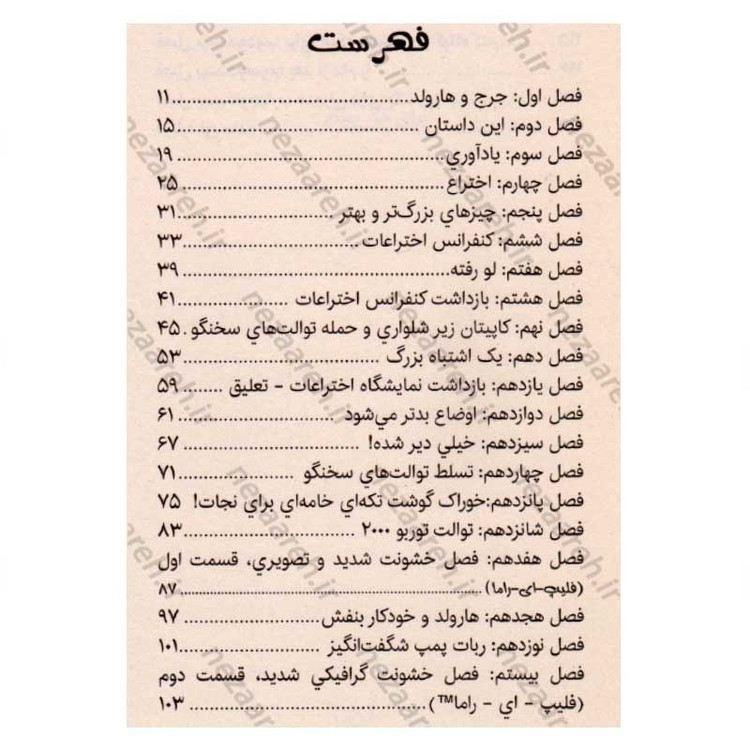 فهرست
فصل اول: جرج و هارولد............................................۱۱
فصل دوم: این داستان ............................................۱۵
فصل سوم: یادآوري............................................۱۹
فصل چهارم: اختراع............................................۲۵
فصل پنجم: چیزهاي بزرگ‌تر و بهتر ..........................۳۱
فصل ششم: کنفرانس اختراعات..............................۳۳
فصل هفتم: لو رفته............................................۳۹
فصل هشتم: بازداشت کنفرانس اختراعات ....................۴۱
فصل نهم: کاپیتان زیر شلواري و حمله توالت‌هاي سخنگو .۴۵
فصل دهم: یک اشتباه بزرگ ..................................۵۳
فصل یازدهم: بازداشت نمایشگاه اختراعات - تعلیق ........۵۹
فصل دوازدهم: اوضاع بدتر مي‌شود ............................۶۱
فصل سیزدهم: خیلي دیر شده! ................................۶۷
فصل چهاردهم: تسلط توالت‌هاي سخنگو ....................۷۱
فصل پانزدهم:خوراک گوشت تکه‌اي خامه‌اي براي نجات! ۷۵
فصل شانزدهم: توالت توربو ۲۰۰۰ ............................۸۳
فصل هفدهم: فصل خشونت شدید و تصویري، قسمت اول
(فلیپ-ای-راما) ............................................۸۷
فصل هجدهم: هارولد و خودکار بنفش........................۹۷
فصل نوزدهم: ربات پمپ شگفت‌انگیز ........................۱۰۱
فصل بیستم: فصل خشونت گرافیکي شدید، قسمت دوم
(فلیپ - اي - راما™) ........................................۱۰۳
nezaareh.ir